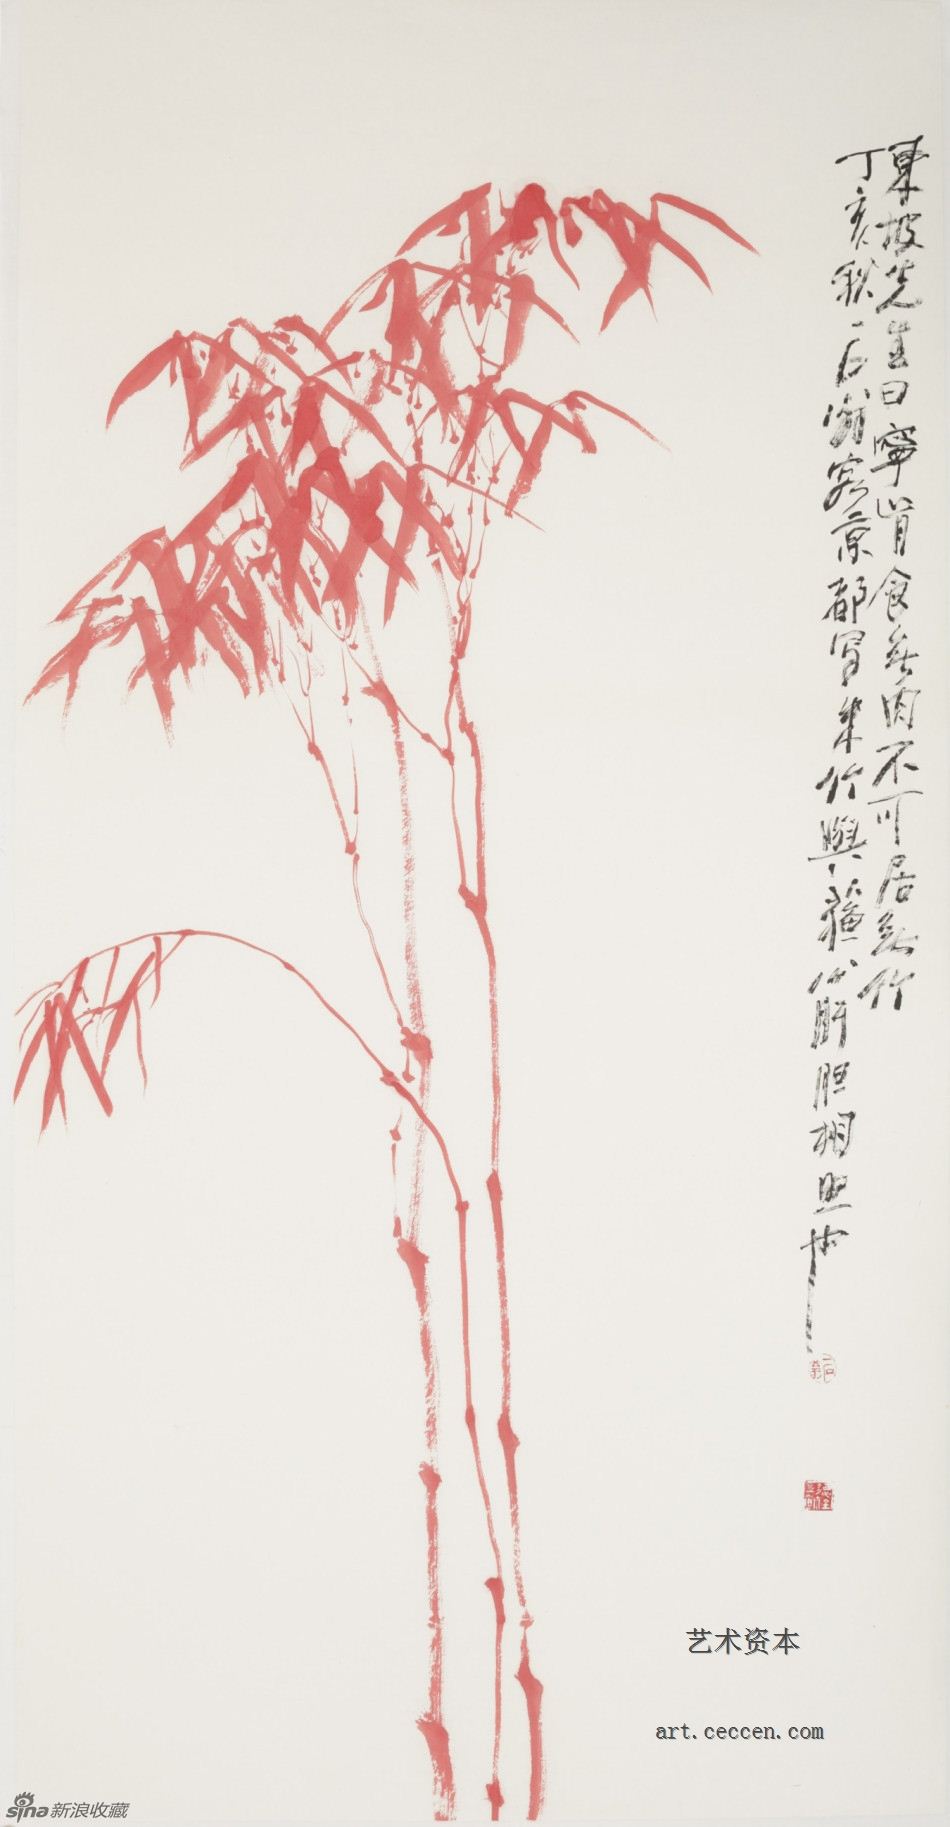 東坡先生曰寧肯食無肉不可居無竹
丁亥秋一石翁客京都寫朱竹與蘇公肝胆相照也
艺术资本
art.ceccen.com
sina新浪收藏